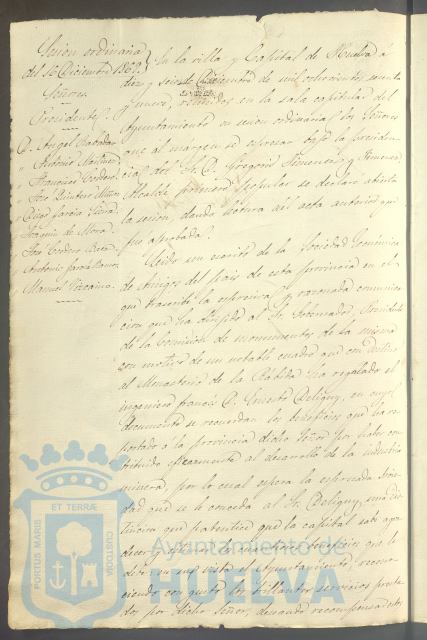 Sesion ordinaria
del 16 Diciembre 1869.
Señores.
Presidente
D. Angel Rabadan
" Antonio Martinez
" Francisco Cordero
" Jose
" Diego Garcia
" Joaquin de Mora.
" José Cordero
" Antonio Garcia Ramos
" Manuel Vizcaino.
En la villa y Capital de Huelva á
diez y seis de Diciembre de mil ochocientos sesenta
y nueve, reunidos en la sala capitular del
Ayuntamiento en sesion ordinaria los Señores
que al margen se espresan bajo la presiden-
cia del Sr. D. Gregorio Jimenez y Jimenez,
Alcalde primero popular se declaró abierta
la sesion, dando lectura al acta anterior que
fue aprobada.
Leido un escrito de la Sociedad Económica
de Amigos del pais de esta provincia en el
que trascribe la espresiva y razonada comunica
cion que ha dirijido al Sr. Gobernador, Presidente
de la Comision de monumentos de la misma
con motivo de un notable cuadro que con destino
al Monasterio de la Rábida ha regalado el
ingeniero francés D. Ernesto Deligny, en cuyo
documento se recuerdan los beneficios que ha re-
portado á la provincia dicho Señor por haber con-
tribuido eficazmente al desarrollo de la industria
minera, por lo cual espera la espresada Socie-
dad que se le conceda al Sr. Deligny, una dis-
tincion que patentice que la capital sabe agra-
decer y apreciar los beneficios que le
debe en su vista el Ayuntamiento, recono-
ciendo con gusto los brillantes servicios presta-
dos por dicho Señor, deseando recompensar
PORTUS MARIS ET TERRÆ CUSTODIA
Ayuntamiento de
HUELVA